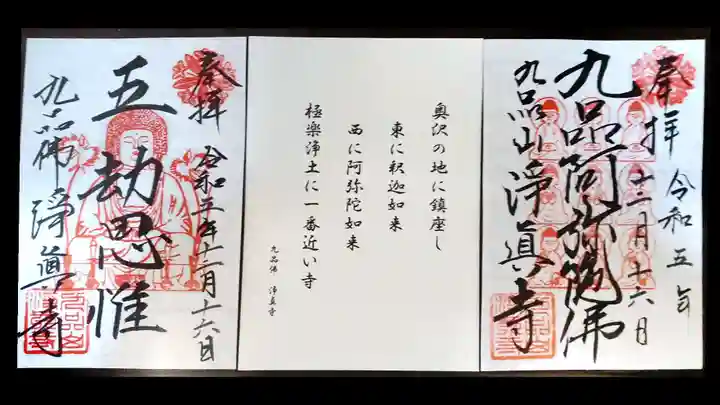 奉拝
令和五年十二月十六日
五劫思惟
九品佛 淨眞寺
奥沢の地に鎮座し
東に釈迦如来
西に阿弥陀如来
極楽浄土に一番近い寺
九品佛 浄真寺
奉拝
令和五年
十二月十六日
九品阿弥陀佛
九品山 淨眞寺